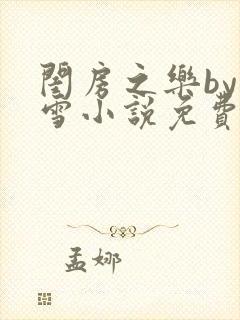 閨房之樂by
雪小說免費
孟娜